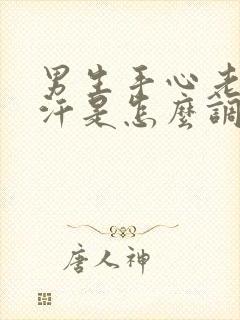 男生手心老
汗是怎麼調
唐人神